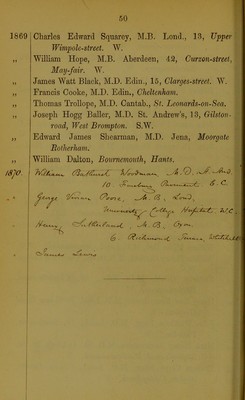 50
1869 Charles Edward Squarey, M.B. Lond., 13, Upper
Wimpole-street. W.
„ William Hope, M.B. Aberdeen, 42, Curzon-street,
May-fair. W.
„ James Watt Black, M.D. Edin., 15, Clarges-street. W.
„ Francis Cooke, M.D. Edin., Cheltenham.
„ Thomas Trollope, M.D. Cantab., St. Leonards-on-Sea.
„ Joseph Hogg Baller, M.D. St. Andrew's, 13, Gilston-
road, West Brompton. S.W.
„ Edward James Shearman, M.D. Jena, Moorgate
Rotherham.
„ William Dalton, Bournemouth, Hants.
1870. William Bathurst Woodman M.D. St. And.
10. Finsbury Pavement E.C
„ George Vivian Poore, M.B., Lond,
University College Hospital W.C.
„ Henry Sutherland M.B. Oxon.
6. Richmond Terrace, Whitehall
„ James Lewis